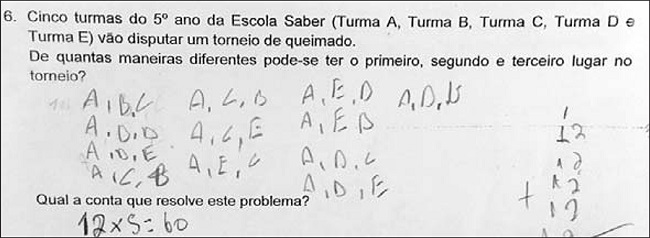 6. Cinco turmas do 5º ano da Escola Saber (Turma A, Turma B, Turma C, Turma D e
Turma E) vão disputar um torneio de queimado.
De quantas maneiras diferentes pode-se ter o primeiro, segundo e terceiro lugar no
torneio?
A, B, C A, C, D A, E, D A, D, B
A, B, D A, C, E A, E B
A, B, E A, E, C A, D, C
A, C, B A, D, E
1
12
12
12
+ 12
Qual a conta que resolve este problema?
12x5=60